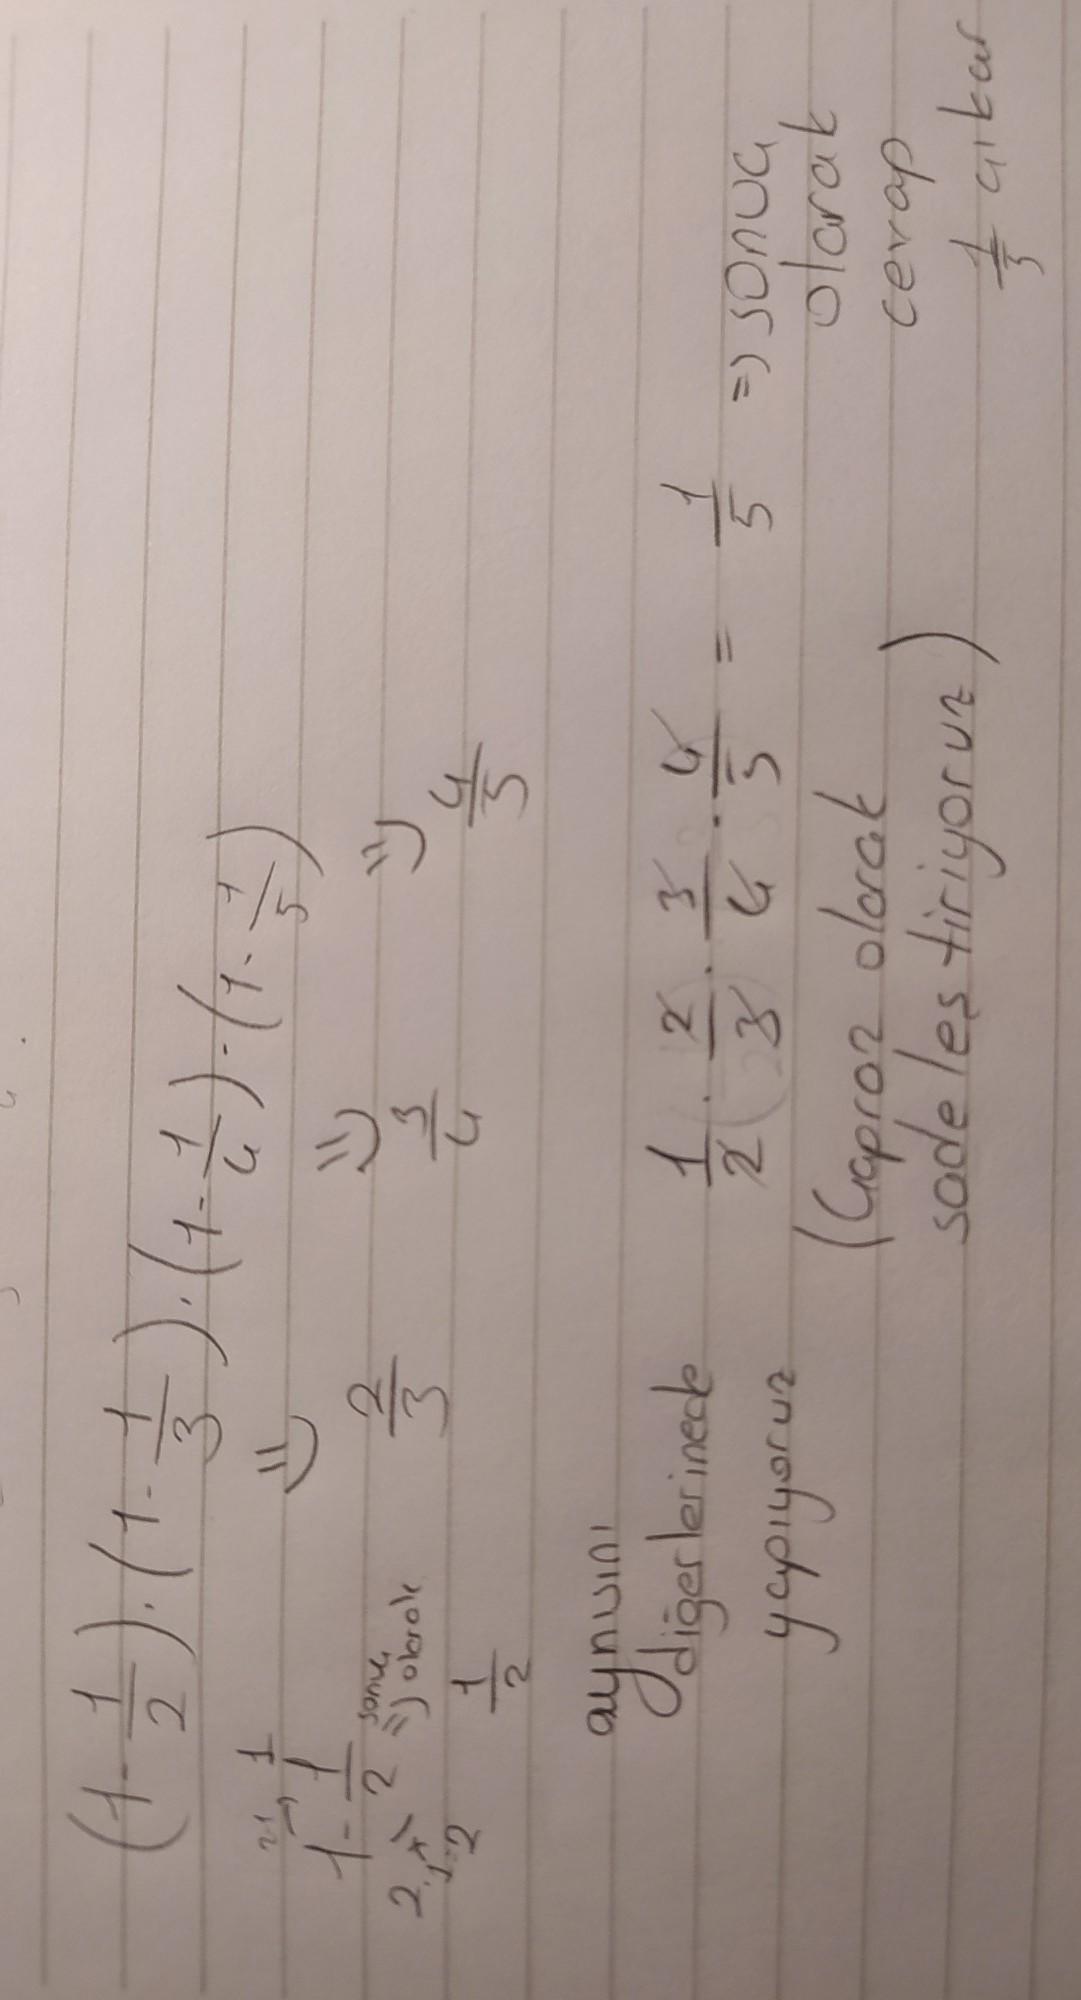 (1-1/2).(1-1/3).(1-1/4).(1-1/5)
1-1/2 => sonuç olarak 1/2
2.1=2
=> 2/3 => 3/4 => 4/5
aynısını
diğerlerinede
yapıyoruz
1/2 . 2/3 . 3/4 . 4/5 = 1/5 => sonuç
olarak
cevap
1/5 çıkar
(Çapraz olarak
sadeleştiriyoruz)